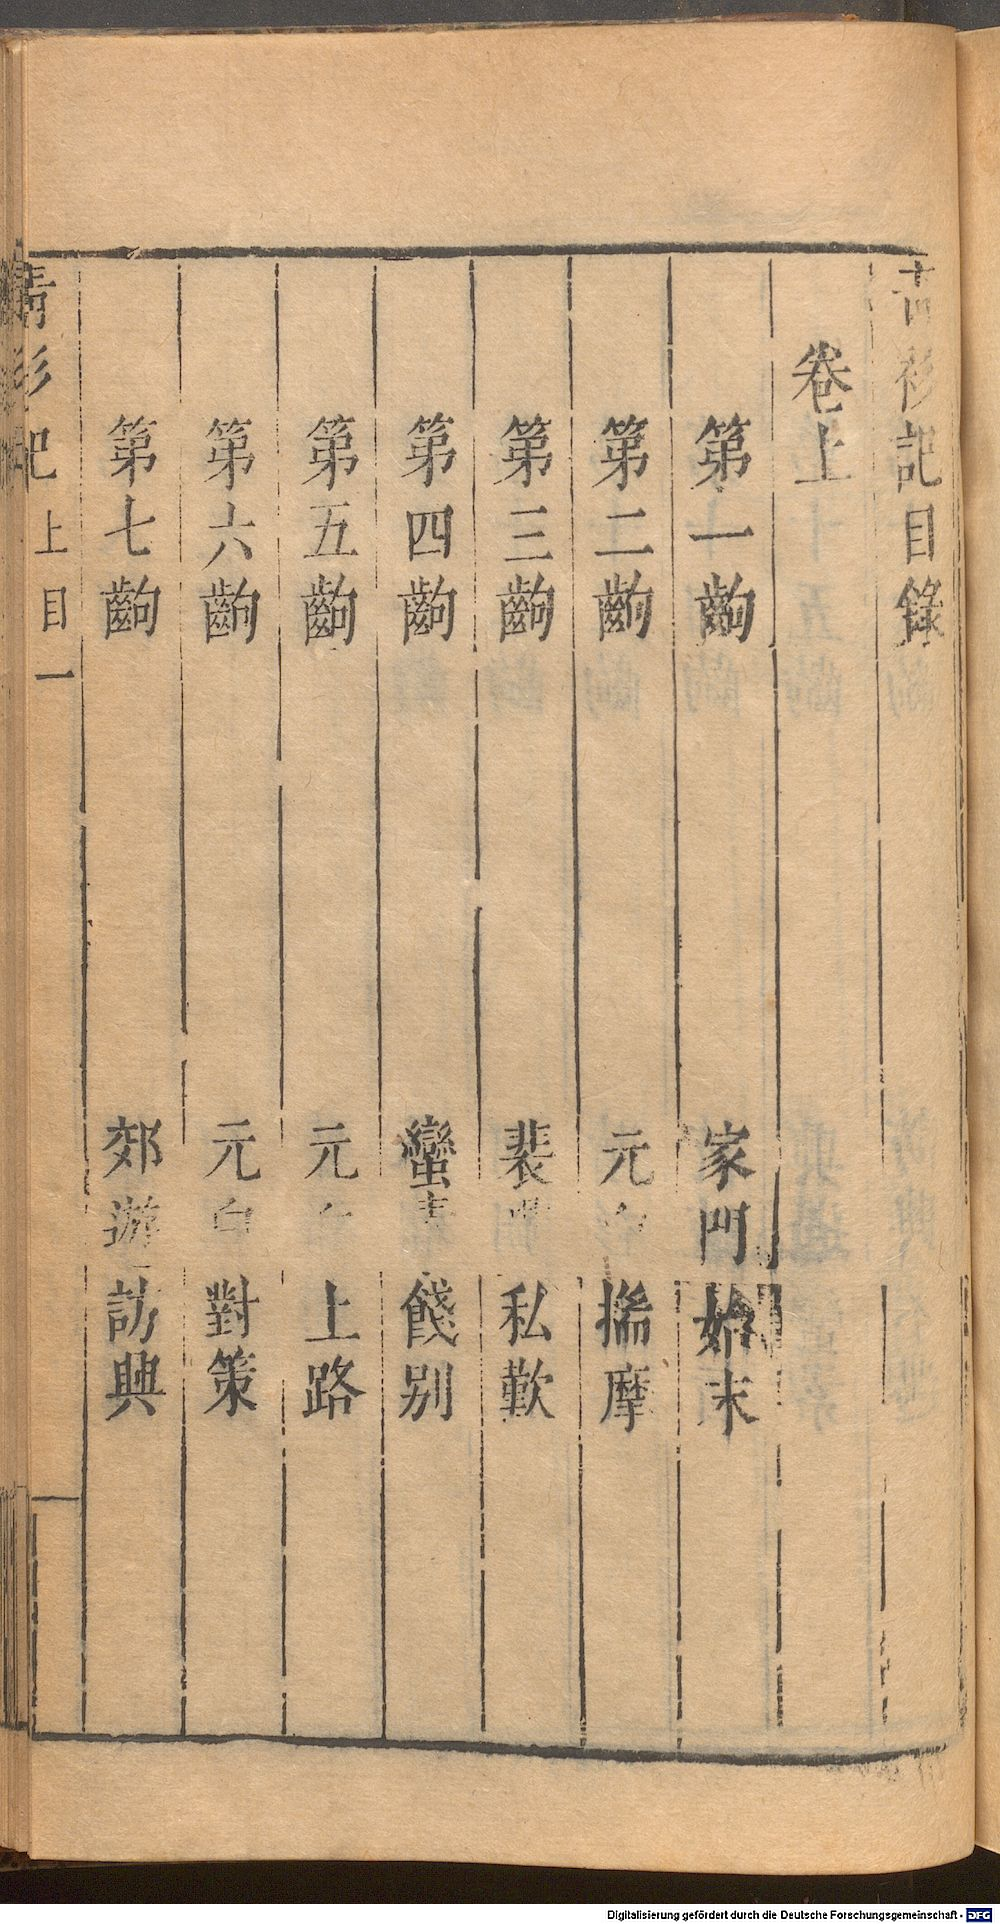 青衫記目錄
卷上
第一齣 家門始末
第二齣 元白揣摩
第三齣 裴興私歡
第四齣 蠻素餞别
第五齣 元白上路
第六齣 元白對策
第七齣 郊游訪興
青衫記 上目 一
Digitalisierung gefördert durch die Deutsche Forschungsgemeinschaft - DFG